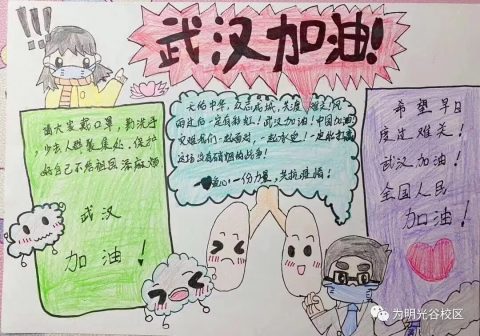 !!!
武汉加油!
请大家戴口罩，勤洗手
少去人群聚集处，保护
好自己不给祖国添麻烦
武汉
加油！
大的中华，众志成城，共渡难关！风
雨过后一定有彩虹！武汉加油！中国加油
灾难我们一起面对，一起承担！一定能打赢
这场没有硝烟的战争！
心！一份力量，共抗疫情！
希望早日
度过难关！
武汉加油！
全国人民
加油！
为明光谷校区